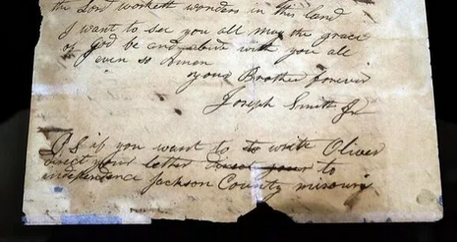 the Lord worketh wonders in this land
I want to see you all may the grace
of God be and abide with you all
even so Amen
your Brother forever
Joseph Smith Jr
PS if you want to to write Oliver
direct your letter direct your to
independence Jackson County misouri